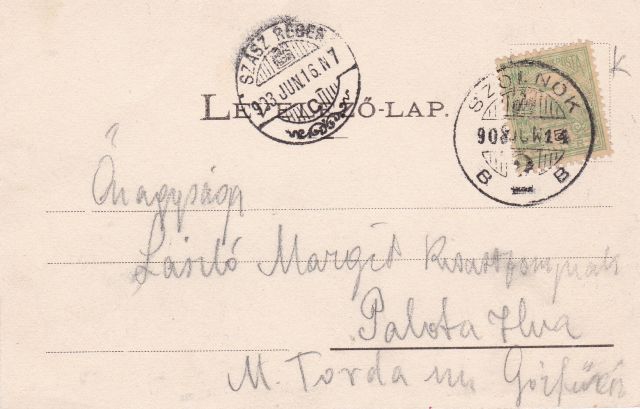 SZÁSZ RÉGEN
903 JUN 16. N 7
LEVELEZŐ-LAP.
SZOLNOK
903 JUN 14
B B
K
Őnagysága
László Margit
Palota Ilva
M. Torda m